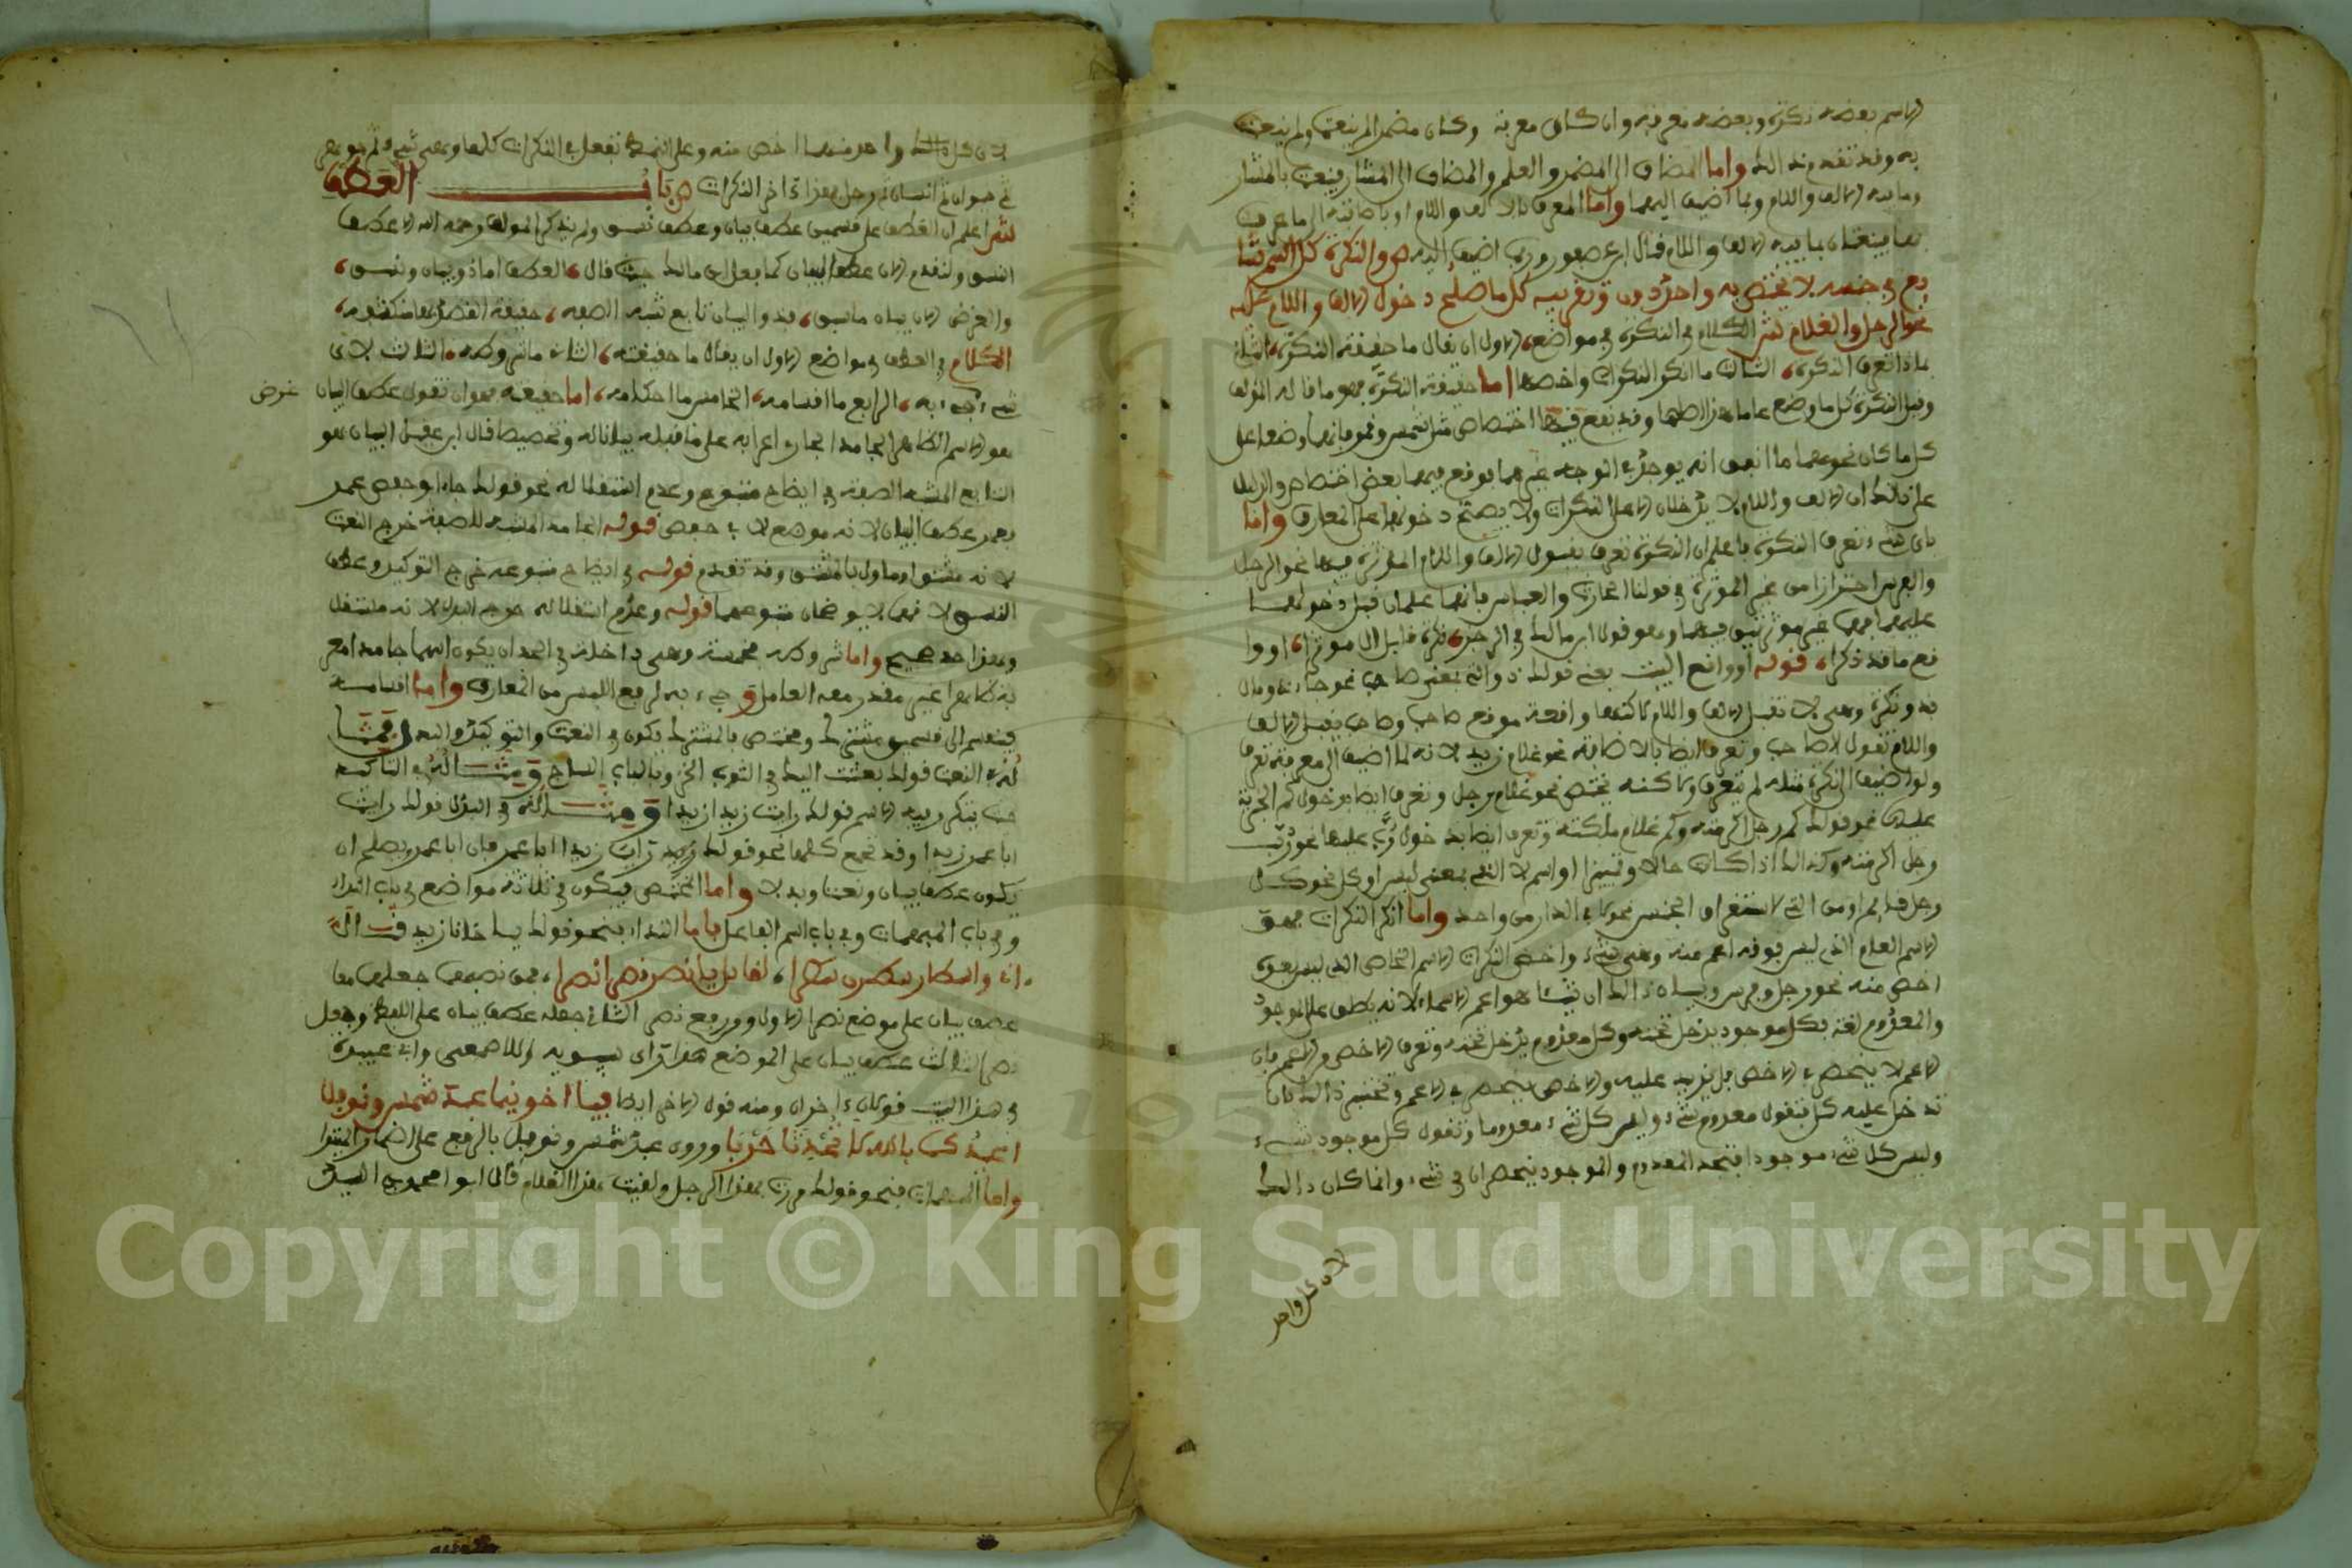 الاسم بعضه نكرة وبعضه معرفة وان كان معرفة وكان مضمرا لم ينعت ولم ينعت
به وقد تقدم ذلك واما المضاف الى المضمر والعلم والمضاف الى المشار فينعت بالمشار
وما فيه الالف واللام وبما اضيف اليهما واما المعرف بالالف واللام او باضافته الى ما عرف
بهما ينعتان بما فيه الالف واللام قال ابن عصفور وبما اضيف اليه ص والنكرة كل اسم شا
يع في جنسه لا يختص به واحد دون وتقريبه كل ما صلح دخول الالف واللام عليه
نحو الرجل والغلام ش الكلام في النكرة في مواضع الاول ان يقال ما حقيقة النكرة الثاني
بماذا تعرف النكرة الثالث ما انكر النكرات واخصها اما حقيقة النكرة فهو ما قاله المؤلف
وقيل النكرة كل ما وضع عاما هذا اصلها وقد يقع فيها اختصاص مثل شمس وقمر فانهما وضعا على
كل ما كان نحوهما ما اتفق انه يوجد في الوجود غيرهما فوقع فيهما بعض اختصاص والدليل
على ذلك ان الالف واللام لا يدخلان الا على النكرات ولا يصح دخولها على المعارف واما
باي شيء تعرف النكرة فاعلم ان النكرة تعرف بقبول الالف واللام المؤثرة فيها نحو الرجل
والفرس احترازا من غير المؤثرة في قولنا الحارث والعباس فانهما علمان قبل دخولهما
عليهما فهما غير مؤثرتين فيهما وهو قول ابن مالك في الرجز نكرة قابل ال موثرا، او وا
قع ما قد ذكرا، قوله او واقع البيت يعني قولك ذو التي بمعنى صاحب نحو جاء ذو مال
فذو نكرة وهي لا تقبل الالف واللام لاكنها واقعة موقع صاحب وصاحب يقبل الالف
واللام تقول الصاحب وتعرف ايضا بالاضافة نحو غلام زيد لانه لما اضيف الى معرفة تعرف
ولو اضيف الى نكرة مثله لم يتعرف ولاكنه يختص نحو غلام رجل وتعرف ايضا بدخول كم الخبرية
عليها نحو قولك كم رجل اكرمته وكم غلام ملكته وتعرف ايضا بدخول رب عليها نحو رب
رجل اكرمته وكذلك اذا كانت حالا وتمييزا او اسم لا التي بمعنى ليس او كل نحو كل
الجنس نحو ما في الدار من واحد واما انكر النكرات فهو
الاسم العام الذي ليس فوقه اعم منه وهي شيء واخص النكرات الاسم الخاص الذي ليس
اخص منه نحو رجل وفرس وبيان ذلك ان شيئا هو اعم الاسماء لانه يطلق على الموجود
والمعدوم لغة فكل موجود يدخل تحته وكل معدوم يدخل تحته وتعرف الاخص من الاعم فان
الاعم لا ينحصر في الاخص بل يزيد عليه والاخص ينحصر في الاعم وتختبر ذلك بان
تدخل عليه كل فتقول معدوم شيء وليس كل شيء معدوما وتقول كل موجود شيء
وليس كل شيء موجودا فتجد المعدوم والموجود ينحصران في شيء وانما كان ذلك
لان كل واحد
لان كل واحد منهما اخص منه وعلى هذا تفعل في النكرات كلها وهي شيء ثم جوهر
ثم حيوان ثم انسان ثم رجل هذا اخر النكرات ص باب العطف
ش اعلم ان العطف على قسمين عطف بيان وعطف نسق ولم يذكر المؤلف رحمه الله الا عطف
النسق ولنقدم الان عطف البيان كما فعل ابن مالك حيث قال، العطف اما ذو بيان ونسق،
والغرض الان بيان ما سبق، فذو البيان تابع شبه الصفة، حقيقة القصد به منكشفة،
الكلام في العطف في مواضع الاول ان يقال ما حقيقته، الثاني ما شروطه، الثالث لاي
شيء جيء به، الرابع ما اقسامه، الخامس ما احكامه، اما حقيقته فهو ان تقول عطف البيان
غرض
هو الاسم الظاهر الجامد الجاري اعرابه على ما قبله بيانا له وتخصيصا قال ابن عقيل البيان هو
التابع المشبه الصفة في ايضاح متبوعه وعدم استقلاله نحو قولك جاء ابو حفص عمر
فعمر عطف البيان لانه موضح لابي حفص قوله الجامد المشبه للصفة خرج النعت
لانه مشتق او ماول بالمشتق وقد تقدم قوله في ايضاح متبوعه خرج التوكيد وعطف
النسق لانهما لا يوضحان متبوعهما قوله وعدم استقلاله خرج البدل لانه مستقل
وهذا حد صحيح واما شروطه فخمسة وهي داخلة في الحد ان يكون اسما جامدا مع
ظاهرا غير مقدر معه العامل وجيء به لرفع اللبس من المعارف واما اقسامه
فينقسم الى قسمين مشترك ومختص فالمشترك يكون في النعت والتوكيد والبدل فمثا
له في النعت قولك بعثت اليك في الثوب الخز وبالباب الساج ومثاله في التاكيد
حيث يتكرر فيه الاسم قولك رايت زيدا زيدا ومثاله في البدل قولك رايت
ابا عمر زيدا وقد تجمع كلها نحو قولك رايت زيدا ابا عمر فان ابا عمر يصلح ان
يكون عطف بيان ونعتا وبدلا واما المختص فيكون في ثلاثة مواضع في باب النداء
وفي باب المبهمات وفي باب اسم الفاعل فاما النداء فنحو قولك يا اخانا زيد قال
اني واسطار سطرن سطرا، لقايل يا نصر نصر نصرا، فمن نصبهما جعلهما معا
عطف بيان على موضع نصر الاول ومن رفع نصر الثاني جعله عطف بيان على اللفظ وجعل
نصر الثالث عطف بيان على الموضع هذا راي سيبويه وللاصمعي وابي عبيدة
في هذا البيت قولان اخران ومنه قول الاخر ايضا فيا اخوينا عبد شمس ونوفلا
اعيذكما بالله ان تحدثا حربا وروى عبد شمس ونوفل بالرفع على اضمار المبتدا
واما المبهمات فنحو قولك مررت بهذا الرجل ولقيت هذا الغلام قال ابو محمد بن السيد
Copyright © King Saud University
1957